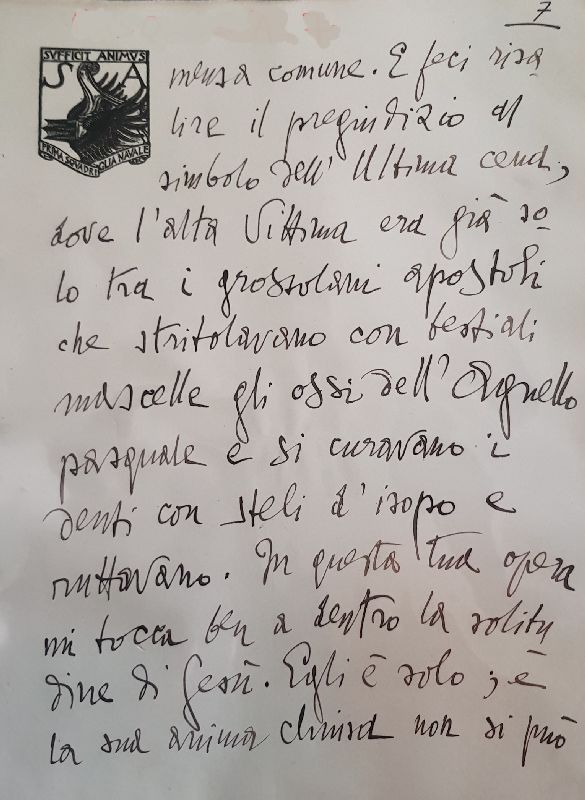 7
SVFFICIT ANIMVS
S A
PRIMA SQUADRIGLIA NAVALE
mensa comune. E feci risa
lire il pregiudizio al
simbolo dell' Ultima cena,
dove l'alta Vittima era già so
lo tra i grossolani apostoli
che stritolavano con bestiali
mascelle gli ossi dell' Agnello
pasquale e si curavano i
denti con steli d'isopo e
ruttavano. In questa tua opera
mi tocca ben a dentro la solitu
dine di Gesù. Egli è solo; e
la sua anima chiusa non si può